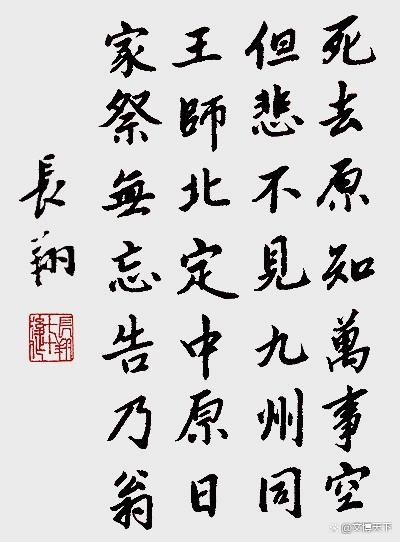 死去原知萬事空
但悲不見九州同
王師北定中原日
家祭無忘告乃翁
長翔
@文博天下